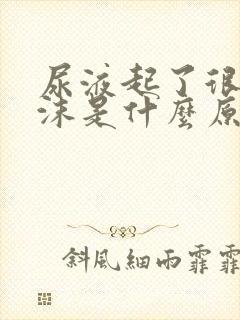 尿液起了很
沫是什麼原
斜風細雨霏霏